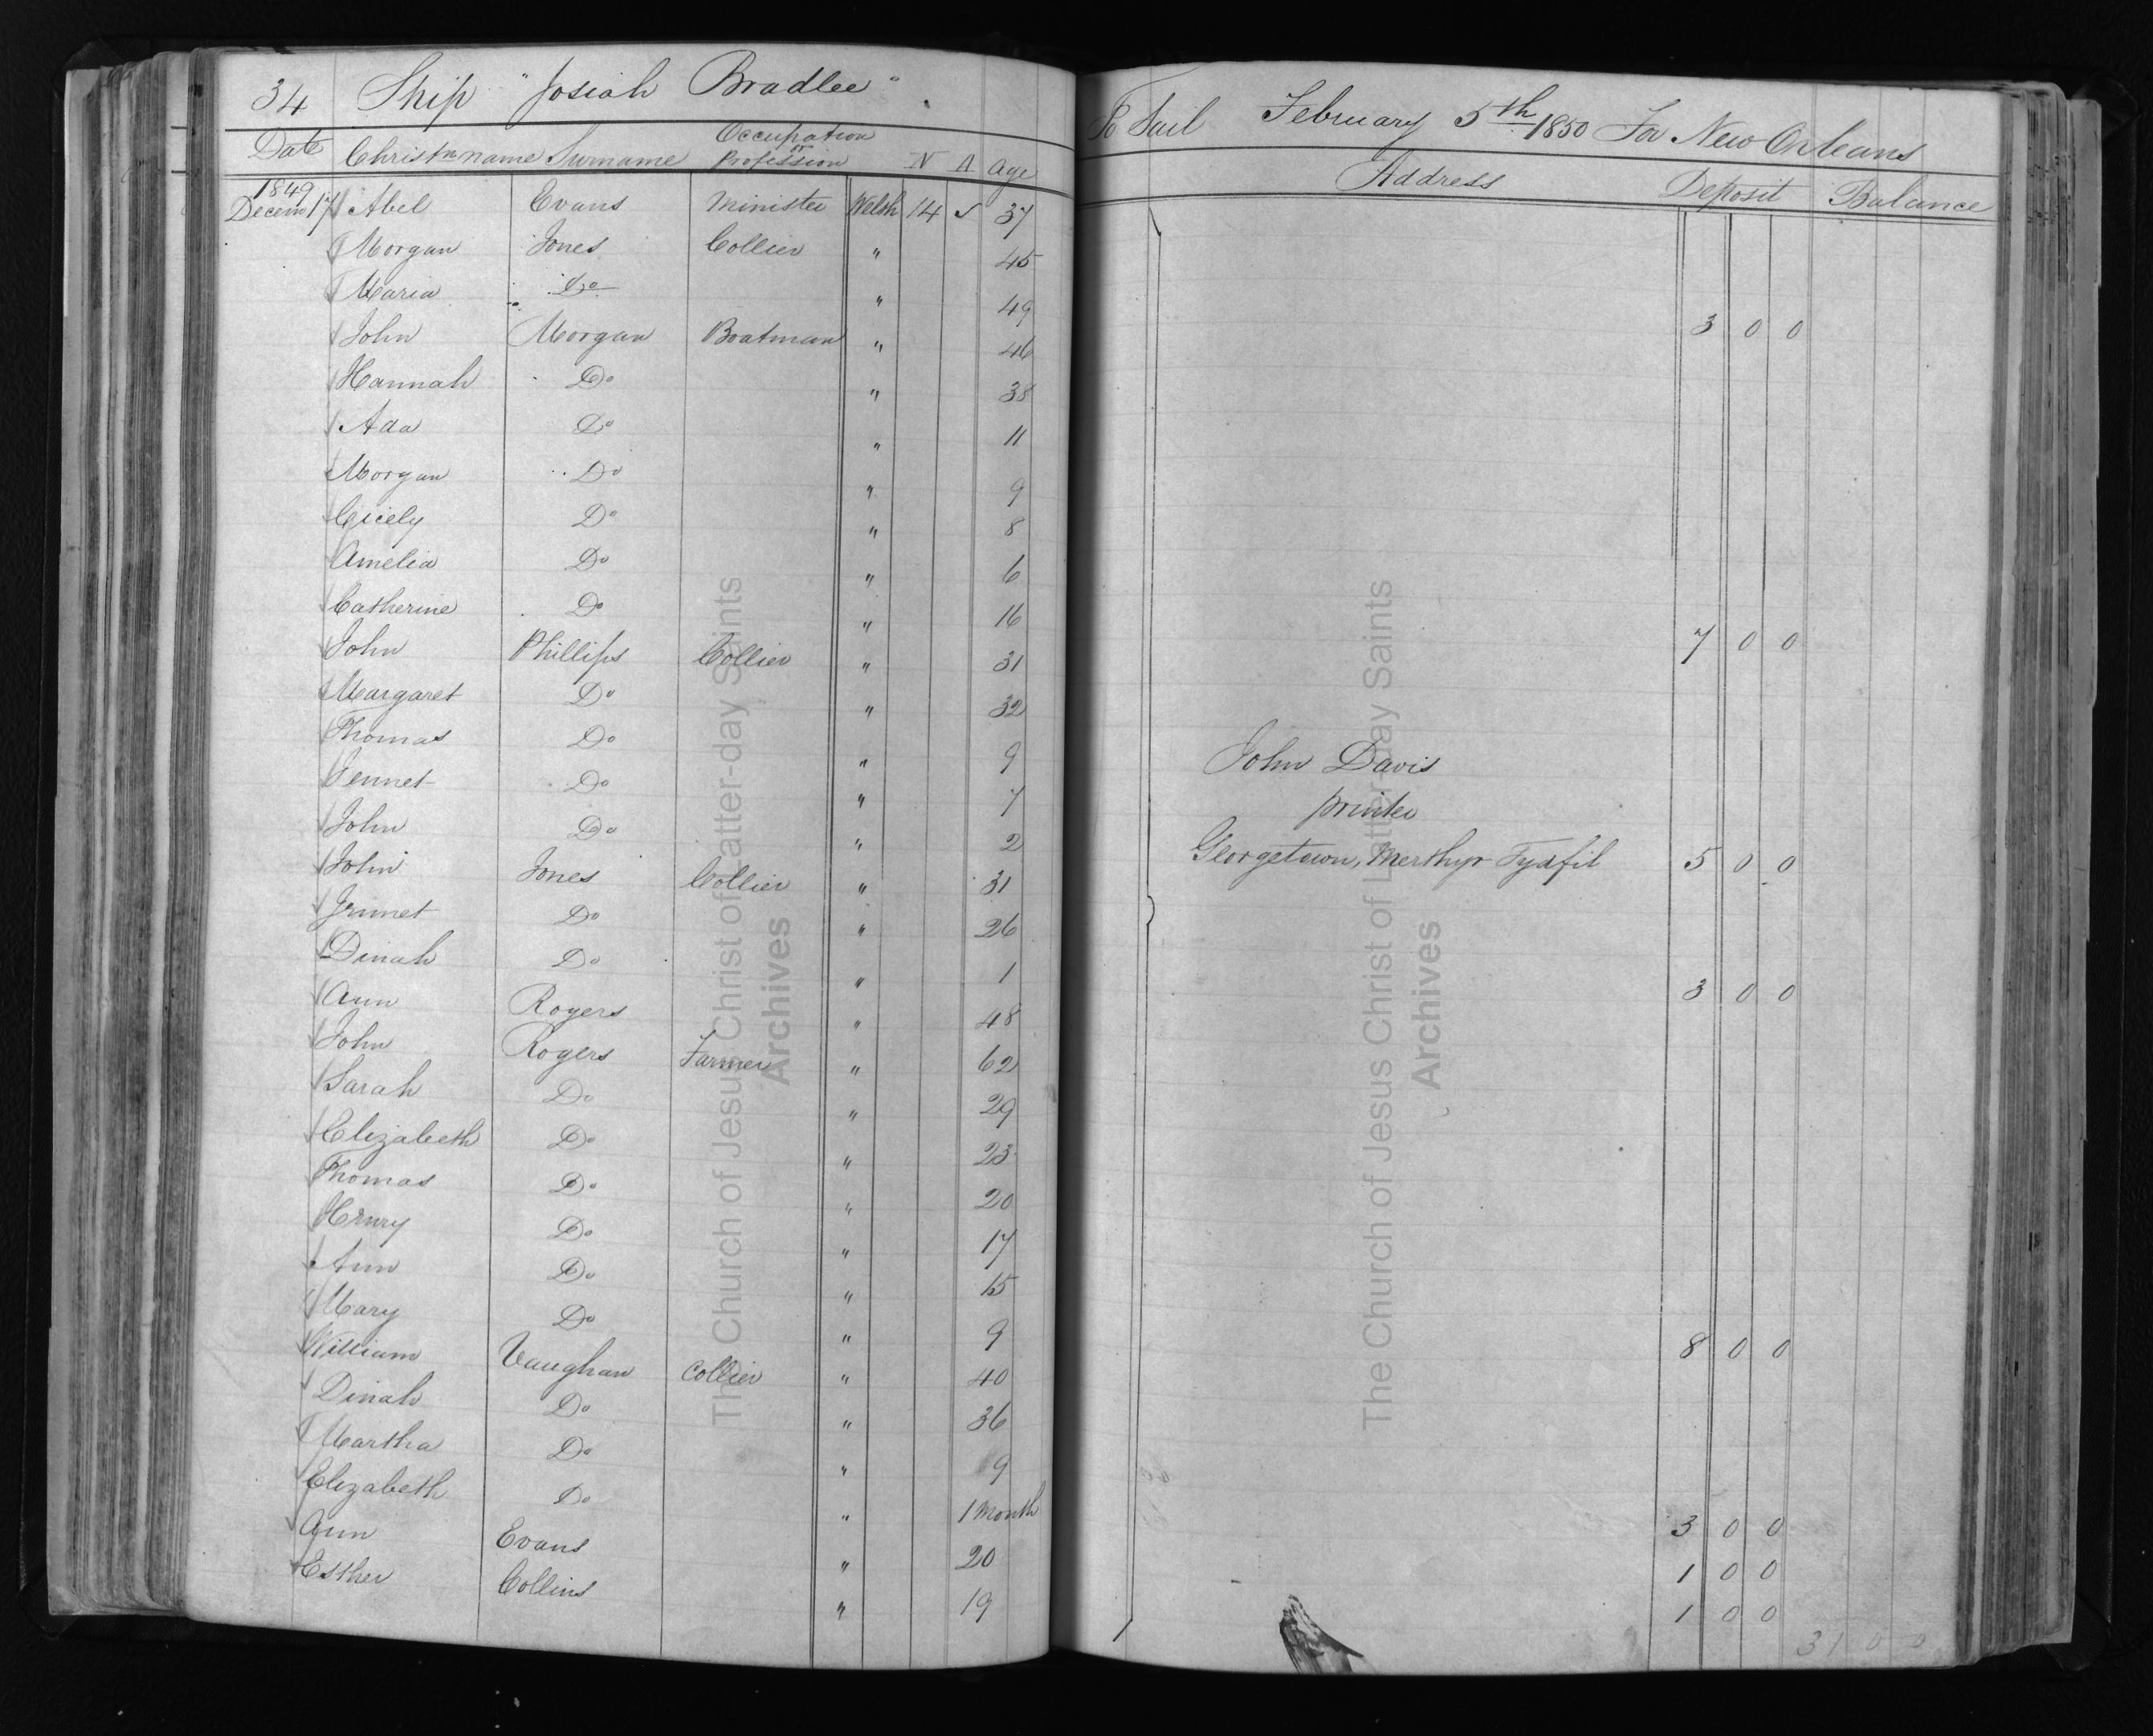 34 Ship "Josiah Bradlee"
To Sail February 5th 1850 For New Orleans
Date Christn name Surname Occupation or Profession N A Age
Address Deposit Balance
1849
Decem 17 Abel Evans Minister Welsh 14 37
Morgan Jones Collier " 45
Maria Do " 49 3 0 0
John Morgan Boatman " 46
Hannah Do " 38
Ada Do " 11
Morgan Do " 9
Cicely Do " 8
Amelia Do " 6
Catherine Do " 16 7 0 0
John Phillips Collier " 31
Margaret Do " 32
Thomas Do " 9
Jennet Do " 7
John Do " 2 5 0 0
John Davis
printer
Georgetown, Merthyr Tydfil
John Jones Collier " 31
Jennet Do " 26
Dinah Do " 1 3 0 0
Ann Rogers " 48
John Rogers Farmer " 62
Sarah Do " 29
Elizabeth Do " 23
Thomas Do " 20
Henry Do " 17
Ann Do " 15
Mary Do " 9 8 0 0
William Vaughan Collier " 40
Dinah Do " 36
Martha Do " 9
Elizabeth Do " 1 month 3 0 0
Ann Evans " 20 1 0 0
Esther Collins " 19 1 0 0
31 0 0
The Church of Jesus Christ of Latter-day Saints
Archives
The Church of Jesus Christ of Latter-day Saints
Archives